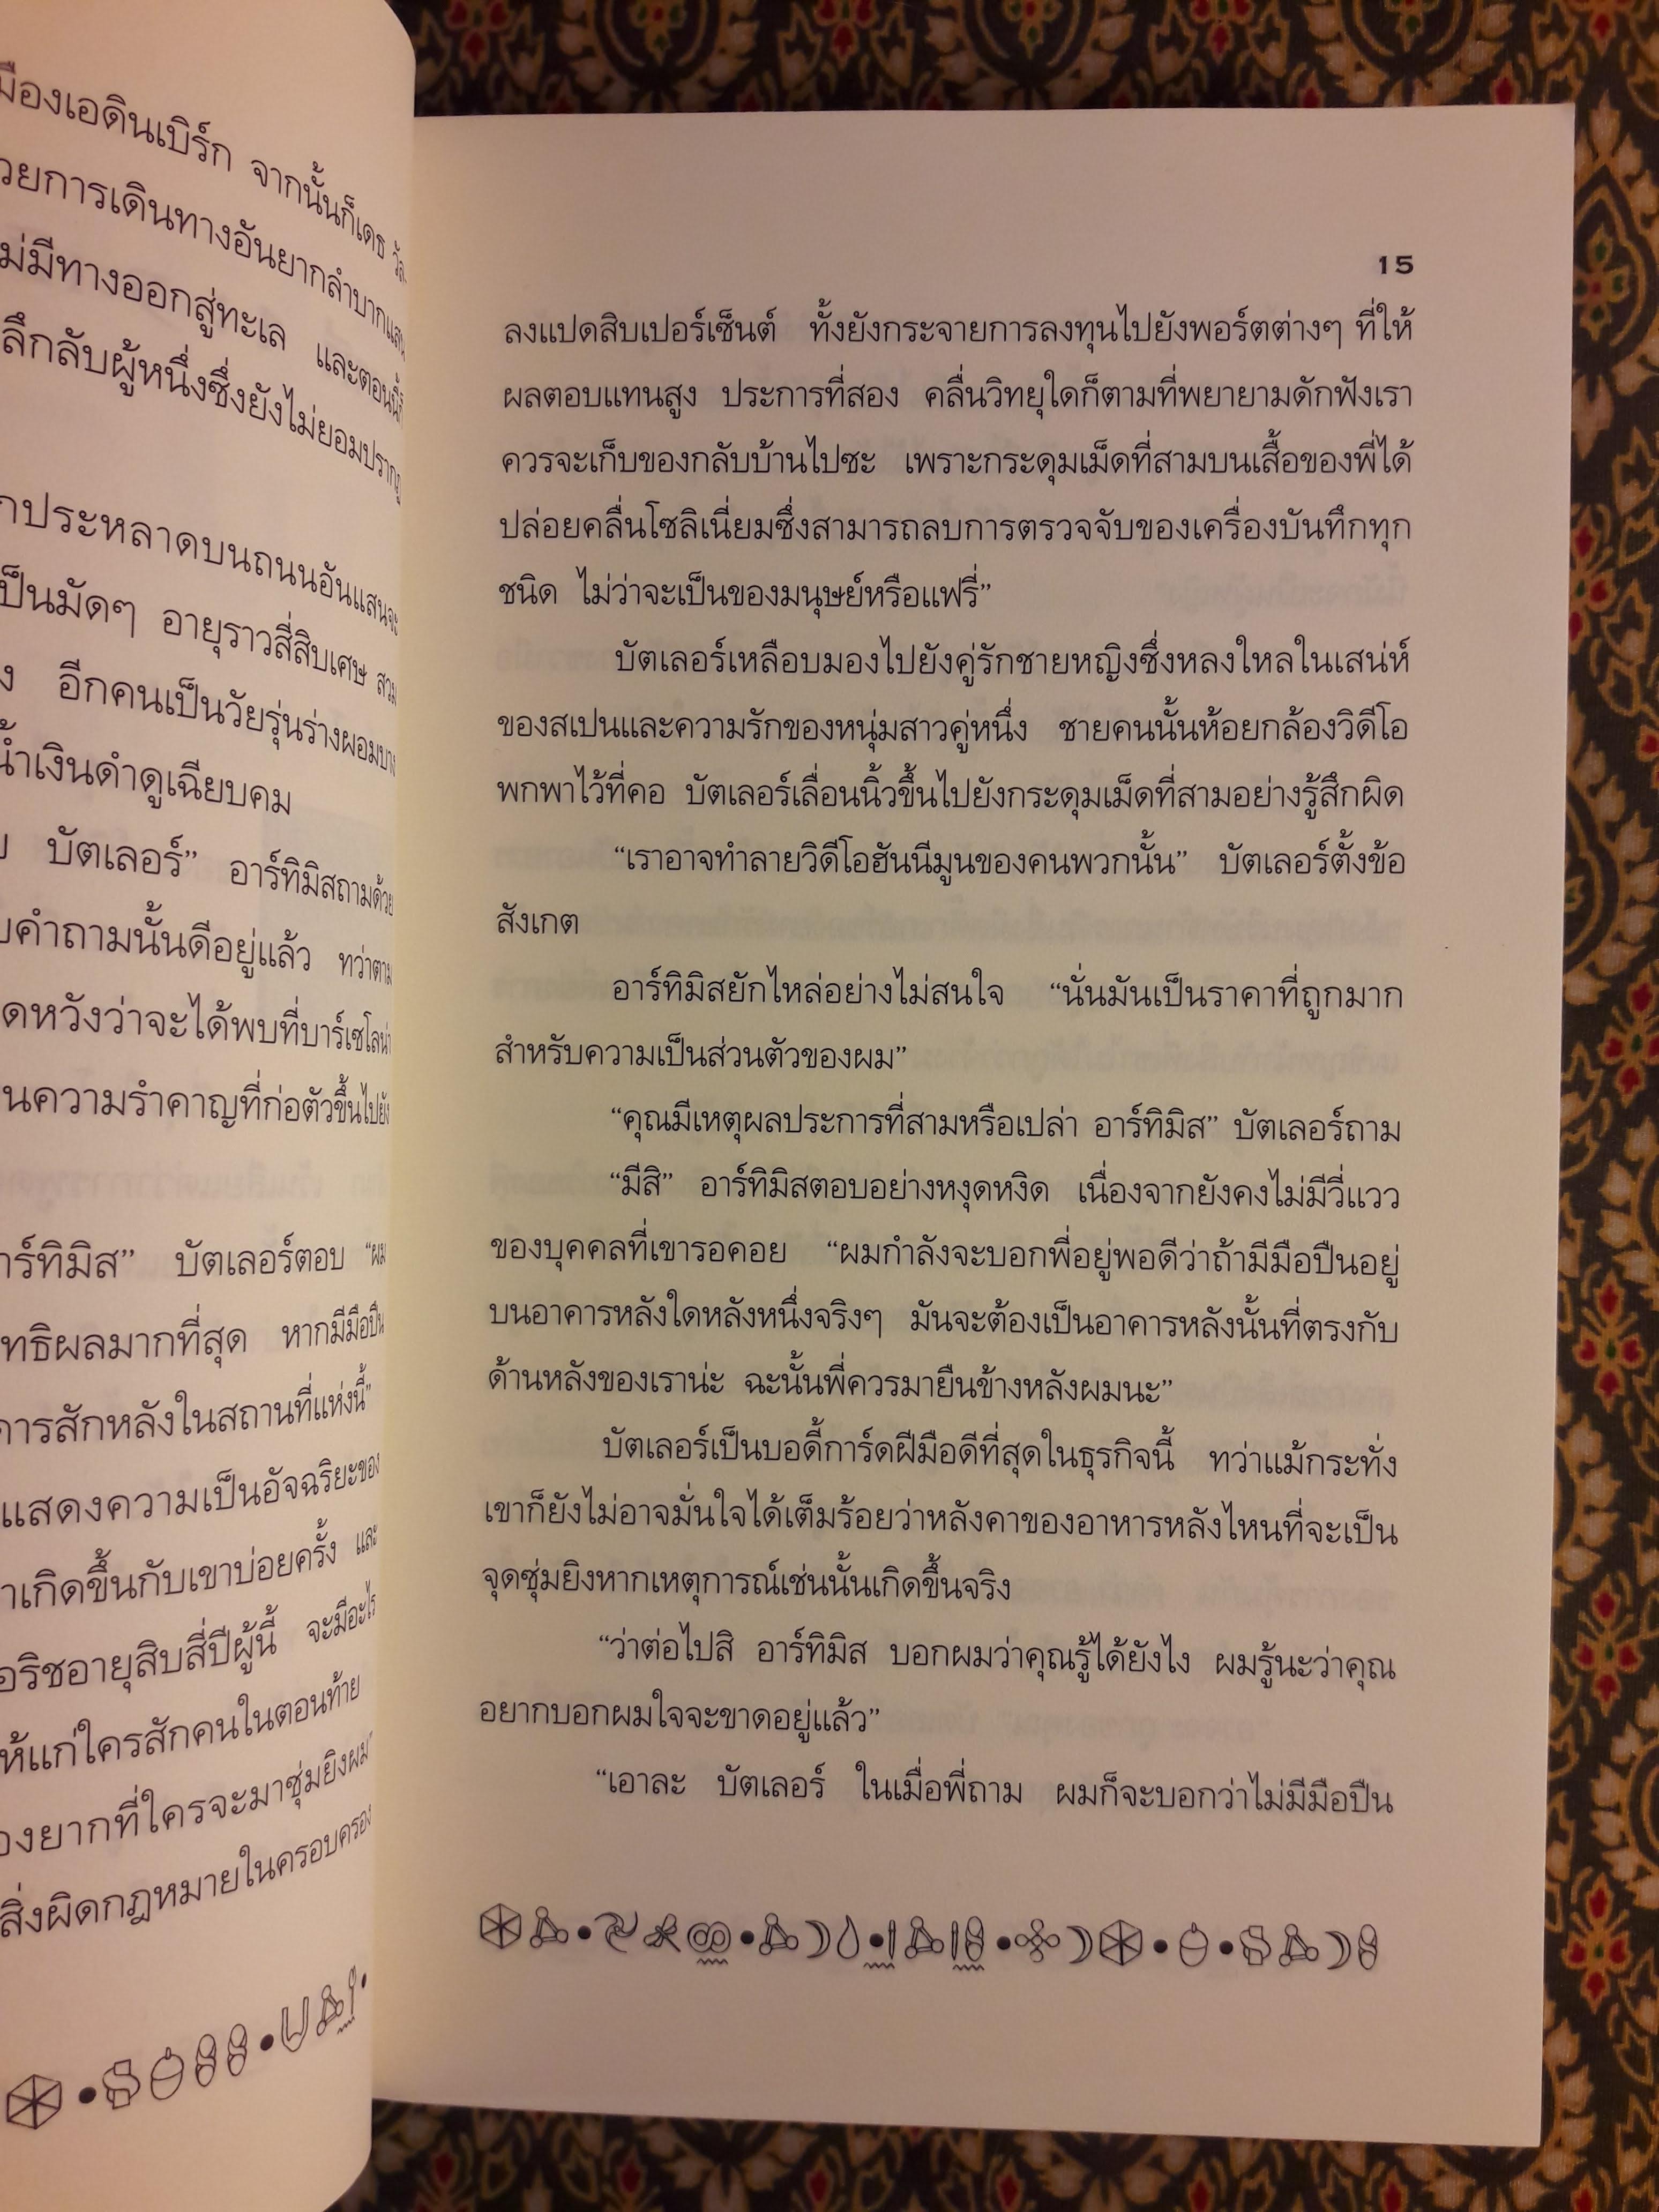 มืองเอดินเบิร์ก จากนั้นก็เดธ วัล
วยการเดินทางอันยากลำบากแสน
ม่มีทางออกสู่ทะเล และตอนนี้
ลึกลับผู้หนึ่งซึ่งยังไม่ยอมปรากฏ
ประหลาดบนถนนอันแสนจะ
ป็นมัดๆ อายุราวสี่สิบเศษ สวม
ง อีกคนเป็นวัยรุ่นร่างผอมบาง
น้ำเงินดำดูเฉียบคม
บัตเลอร์” อาร์ทิมิสถามด้วย
บคำถามนั้นดีอยู่แล้ว ทว่าตาม
ดหวังว่าจะได้พบที่บาร์เซโลน่า
นความรำคาญที่ก่อตัวขึ้นไปยัง
าร์ทิมิส” บัตเลอร์ตอบ “ผม
ทธิผลมากที่สุด หากมีมือปืน
การสักหลังในสถานที่แห่งนี้”
แสดงความเป็นอัจฉริยะของ
าเกิดขึ้นกับเขาบ่อยครั้ง และ
อริชอายุสิบสี่ปีผู้นี้ จะมีอะไร
ห้แก่ใครสักคนในตอนท้าย
องยากที่ใครจะมาซุ่มยิงผม
สิ่งผิดกฎหมายในครอบครอง
15
ลงแปดสิบเปอร์เซ็นต์ ทั้งยังกระจายการลงทุนไปยังพอร์ตต่างๆ ที่ให้
ผลตอบแทนสูง ประการที่สอง คลื่นวิทยุใดก็ตามที่พยายามดักฟังเรา
ควรจะเก็บของกลับบ้านไปซะ เพราะกระดุมเม็ดที่สามบนเสื้อของพี่ได้
ปล่อยคลื่นโซลิเนี่ยมซึ่งสามารถลบการตรวจจับของเครื่องบันทึกทุก
ชนิด ไม่ว่าจะเป็นของมนุษย์หรือแฟรี่”
บัตเลอร์เหลือบมองไปยังคู่รักชายหญิงซึ่งหลงใหลในเสน่ห์
ของสเปนและความรักของหนุ่มสาวคู่หนึ่ง ชายคนนั้นห้อยกล้องวิดีโอ
พกพาไว้ที่คอ บัตเลอร์เลื่อนนิ้วขึ้นไปยังกระดุมเม็ดที่สามอย่างรู้สึกผิด
“เราอาจทำลายวิดีโอฮันนีมูนของคนพวกนั้น” บัตเลอร์ตั้งข้อ
สังเกต
อาร์ทิมิสยักไหล่อย่างไม่สนใจ “นั่นมันเป็นราคาที่ถูกมาก
สำหรับความเป็นส่วนตัวของผม”
“คุณมีเหตุผลประการที่สามหรือเปล่า อาร์ทิมิส” บัตเลอร์ถาม
“มีสิ” อาร์ทิมิสตอบอย่างหงุดหงิด เนื่องจากยังคงไม่มีวี่แวว
ของบุคคลที่เขารอคอย “ผมกำลังจะบอกพี่อยู่พอดีว่าถ้ามีมือปืนอยู่
บนอาคารหลังใดหลังหนึ่งจริงๆ มันจะต้องเป็นอาคารหลังนั้นที่ตรงกับ
ด้านหลังของเราน่ะ ฉะนั้นพี่ควรมายืนข้างหลังผมนะ”
บัตเลอร์เป็นบอดี้การ์ดฝีมือดีที่สุดในธุรกิจนี้ ทว่าแม้กระทั่ง
เขาก็ยังไม่อาจมั่นใจได้เต็มร้อยว่าหลังคาของอาหารหลังไหนที่จะเป็น
จุดซุ่มยิงหากเหตุการณ์เช่นนั้นเกิดขึ้นจริง
“ว่าต่อไปสิ อาร์ทิมิส บอกผมว่าคุณรู้ได้ยังไง ผมรู้นะว่าคุณ
อยากบอกผมใจจะขาดอยู่แล้ว”
“เอาละ บัตเลอร์ ในเมื่อพี่ถาม ผมก็จะบอกว่าไม่มีมือปืน